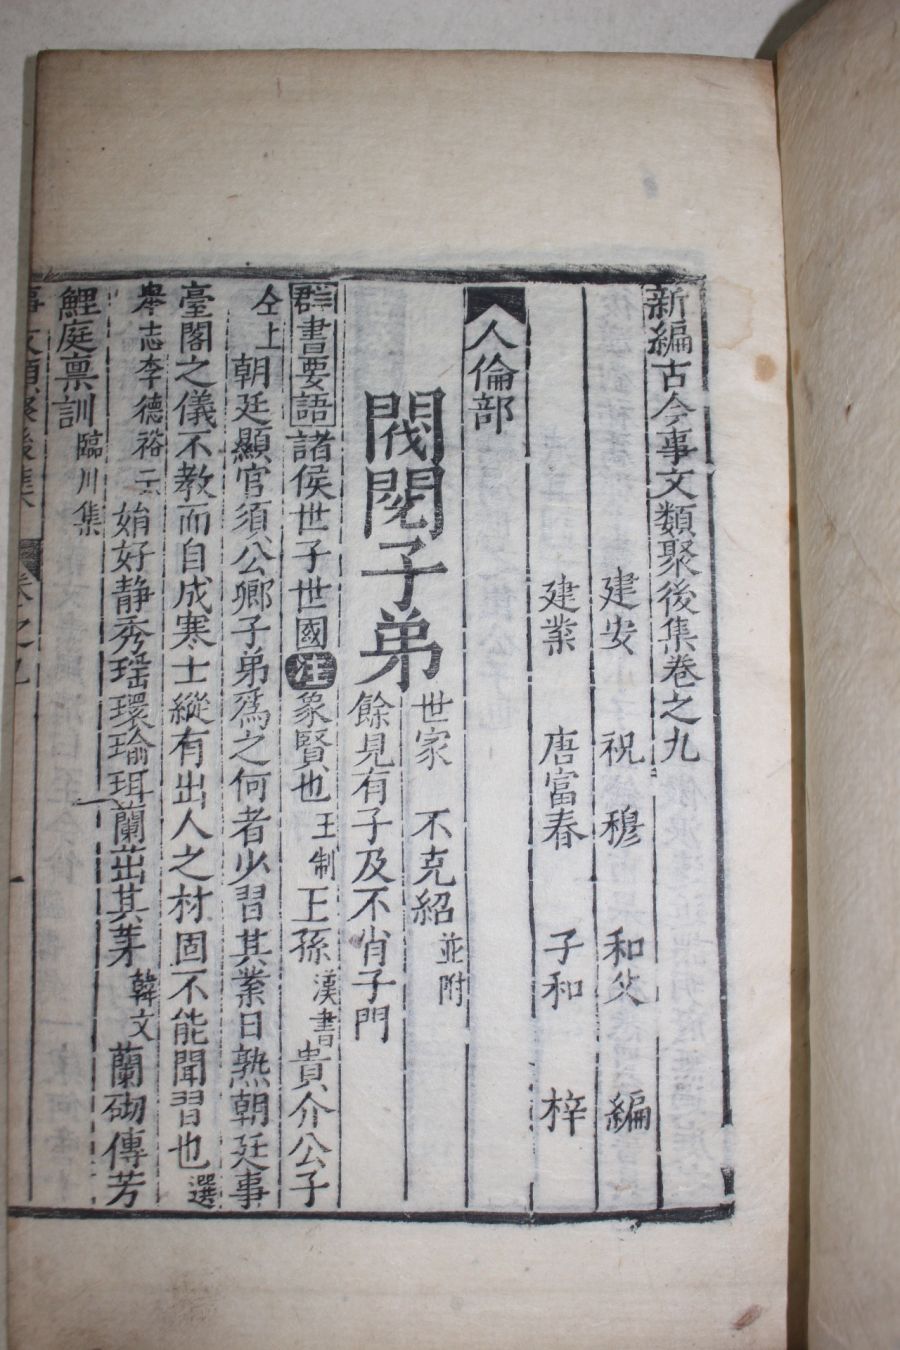 新編古今事文類聚後集卷之九
建安 祝穆 和父 編
建業 唐富春 子和 梓
人倫部
閥閱子弟 世家 不克紹 並附
餘見有子及不肖子門
群書要語 諸侯世子世國 注 象賢也 王制 王孫 漢書 貴介公子
仝上 朝廷顯官須公卿子弟爲之何者少習其業日熟朝廷事
臺閣之儀不教而自成寒士縱有出人之材固不能閑習也 選
舉志李德裕云 娟好静秀瑶環瑜珥蘭茁其芽 韓文 蘭砌傳芳
鯉庭禀訓 臨川集
事文類聚後集 卷之九